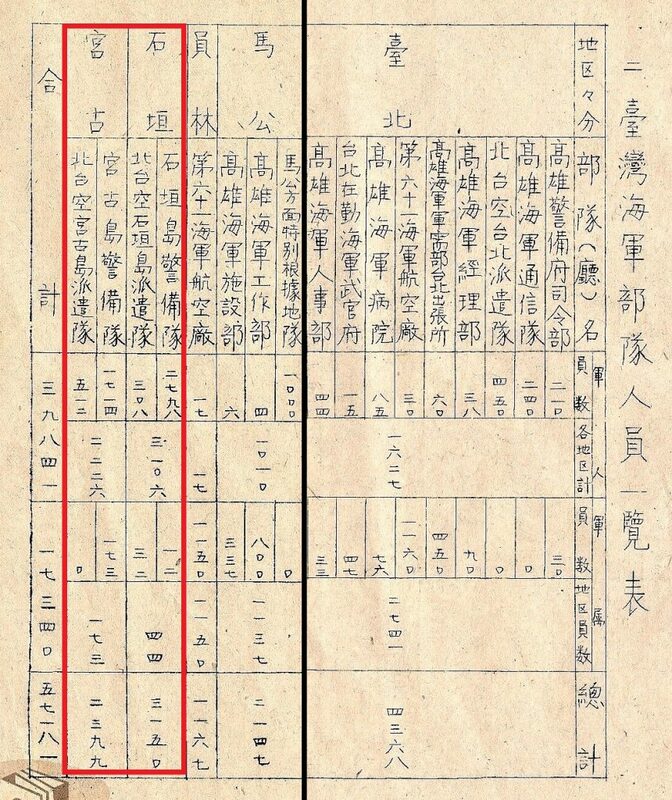 二臺灣海軍部隊人員一覽表
地区々分 部隊(廳)名 軍人 員数 各地区計 軍属 員数 地区員数 總計
臺北
高雄警備府司令部 二一〇 三〇
高雄海軍通信隊 二四〇 〇
北台空台北派遣隊 四五〇 〇
高雄海軍經理部 三八 九〇
高雄海軍軍需部台北出張所 六〇 四五〇
第六十一海軍航空廠 三〇 一一六〇
高雄海軍病院 八五 七六
台北在勤海軍武官府 一五 四七
高雄海軍人事部 四四 三三
一六二七 二七四一 四三六八
馬公
馬公方面特别根據地隊 一〇〇〇 〇
高雄海軍工作部 四 八〇〇
高雄海軍施設部 六 三三七
一〇一〇 一一三七 二一四七
員林
第六十一海軍航空廠 一七 一七 一一五〇 一一五〇 一一六七
石垣
石垣島警備隊 二七九八 一二
北台空石垣島派遣隊 三〇八 三二
三一〇六 四四 三一五〇
宮古
宮古島警備隊 一七一四 一七三
北台空宮古島派遣隊 五一二 〇
二二二六 一七三 二三九九
合計 三九八四一 一七三四〇 五七一八一